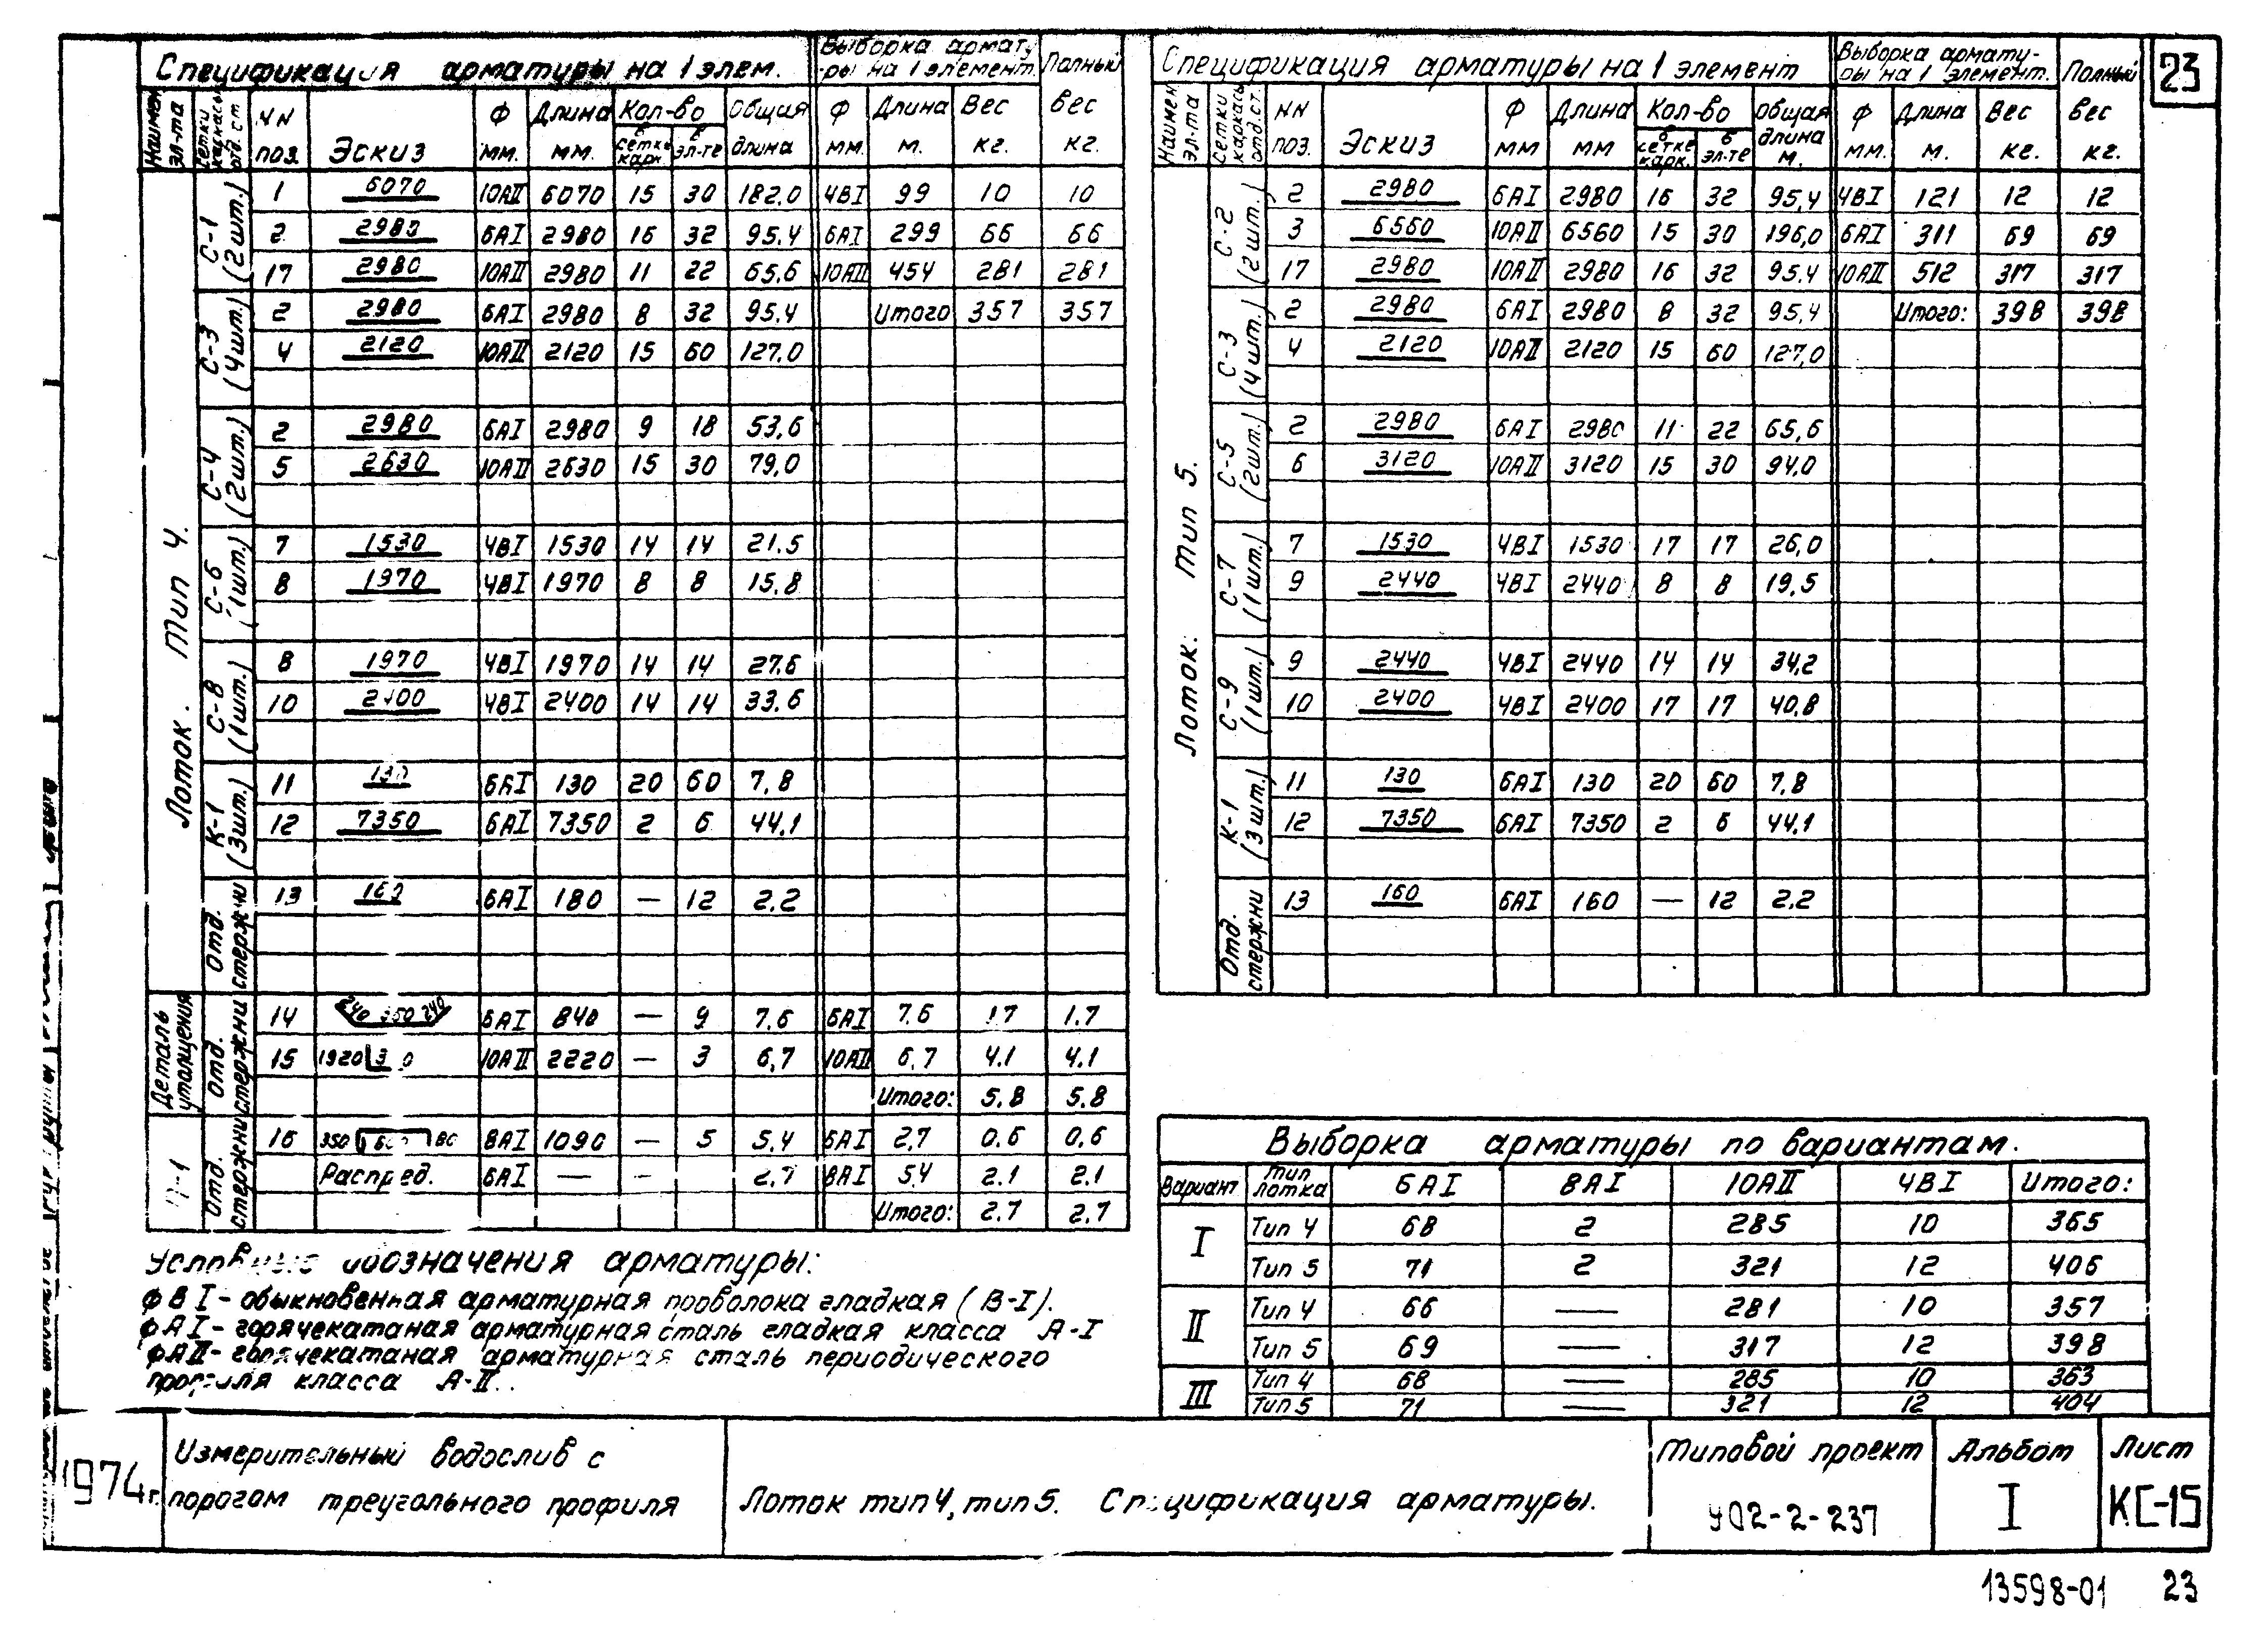 23
Спецификация арматуры на 1 элем. Выборка армату-ры на 1 элемент. Полный вес кг.
Наимен. эл-та Сетки каркасы отд. ст. NN поз. Эскиз Ф мм. Длина мм. Кол-во в сетке карк. в эл-те Общая длина Ф мм. Длина м. Вес кг.
Лоток. Тип 4.
С-1 (2шт.)
1 6070 10АII 6070 15 30 182,0 4ВI 99 10 10
2 2980 6АI 2980 16 32 95.4 6АI 299 66 66
17 2980 10АII 2980 11 22 65.6 10АII 454 281 281
С-3 (4шт.)
2 2980 6АI 2980 8 32 95.4 Итого 357 357
4 2120 10АII 2120 15 60 127,0
С-4 (2шт.)
2 2980 6АI 2980 9 18 53,6
5 2630 10АII 2630 15 30 79,0
С-6 (1шт.)
7 1530 4ВI 1530 14 14 21.5
8 1970 4ВI 1970 8 8 15,8
С-8 (1шт.)
8 1970 4ВI 1970 14 14 27.6
10 2400 4ВI 2400 14 14 33.6
К-1 (3шт.)
11 130 6АI 130 20 60 7,8
12 7350 6АI 7350 2 6 44,1
Отд. стержни
13 160 6АI 180 — 12 2.2
Деталь утолщения Отд. стержни
14 240 350 240 6АI 840 — 9 7.6 6АI 7.6 1.7 1.7
15 1920 10АII 2220 — 3 6,7 10АII 6,7 4.1 4.1
Итого: 5.8 5.8
П-1 Отд. стержни
16 350 8АI 1090 — 5 5,4 6АI 2,7 0.6 0,6
Распред. 6АI — - 2,7 8АI 5,4 2.1 2.1
Итого: 2.7 2.7
Условные обозначения арматуры:
Ф В I - обыкновенная арматурная проволока гладкая (В-I).
Ф А I - горячекатаная арматурная сталь гладкая класса А-I
Ф А II - горячекатаная арматурная сталь периодического
профиля класса А-II.
Спецификация арматуры на 1 элемент Выборка армату-ры на 1 элемент. Полный вес кг.
Наимен эл-та Сетки каркасы отд.ст. NN поз. Эскиз Ф мм Длина мм Кол-во в сетке карк. в эл-те Общая длина м. Ф мм. Длина м. Вес кг.
Лоток. Тип 5.
С-2 (2шт.)
2 2980 6АI 2980 16 32 95,4 4ВI 121 12 12
3 6560 10АII 6560 15 30 196,0 6АI 311 69 69
17 2980 10АII 2980 16 32 95.4 10АII 512 317 317
С-3 (4шт.)
2 2980 6АI 2980 8 32 95,4 Итого: 398 398
4 2120 10АII 2120 15 60 127,0
С-5 (2шт.)
2 2980 6АI 2980 11 22 65,6
6 3120 10АII 3120 15 30 94,0
С-7 (1шт.)
7 1530 4ВI 1530 17 17 26,0
9 2440 4ВI 2440 8 8 19,5
С-9 (1шт.)
9 2440 4ВI 2440 14 14 34,2
10 2400 4ВI 2400 17 17 40,8
К-1 (3шт.)
11 130 6АI 130 20 60 7,8
12 7350 6АI 7350 2 6 44,1
Отд. стержни
13 160 6АI 160 — 12 2.2
Выборка арматуры по вариантам.
Вариант Тип лотка 6АI 8АI 10АII 4ВI Итого:
I Тип 4 68 2 285 10 365
Тип 5 71 2 321 12 406
II Тип 4 66 — 281 10 357
Тип 5 69 — 317 12 398
III Тип 4 68 — 285 10 363
Тип 5 71 — 321 12 404
1974г.
Измерительный водослив с
порогом треугольного профиля
Лоток тип 4, тип 5. Спецификация арматуры.
Типовой проект
402-2-237
Альбом
I
Лист
КС-15
13598-01 23